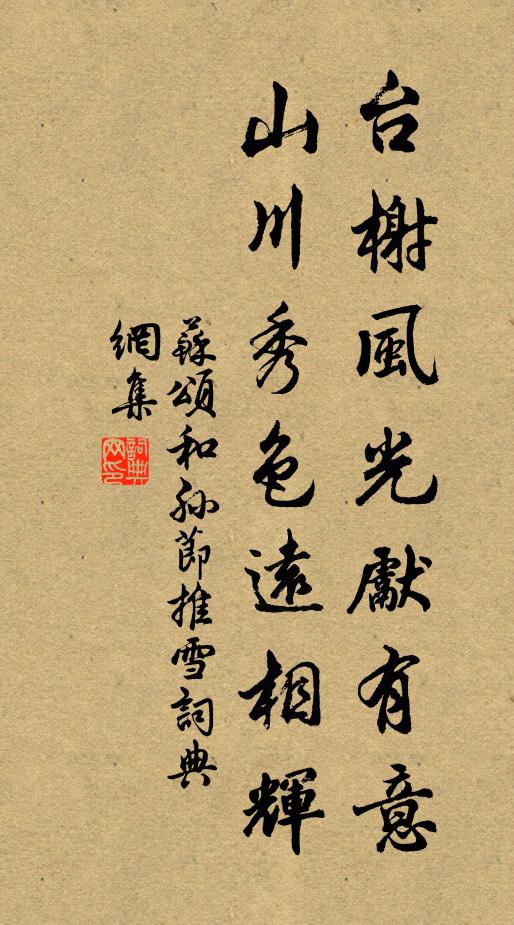 台榭風光獻有意
山川秀色遠相輝
蘇頌和孫節推雪詞典
網集
詞典
网印